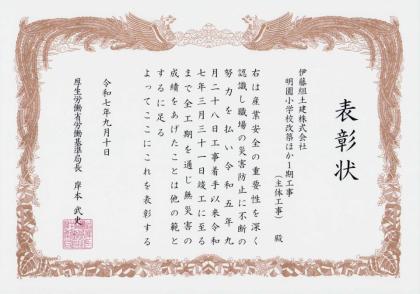 表彰状
伊藤組土建株式会社
明園小学校改築ほか1期工事
(主体工事) 殿
右は産業安全の重要性を深く
認識し職場の災害防止に不断の
努力を払い令和五年九
月二十八日工事着手以来令和
七年三月三十一日竣工に至る
まで全工期を通じ無災害の
成績をあげたことは他の範と
するに足る
よってここにこれを表彰する
令和七年九月十日
厚生労働省労働基準局長 岸本武史